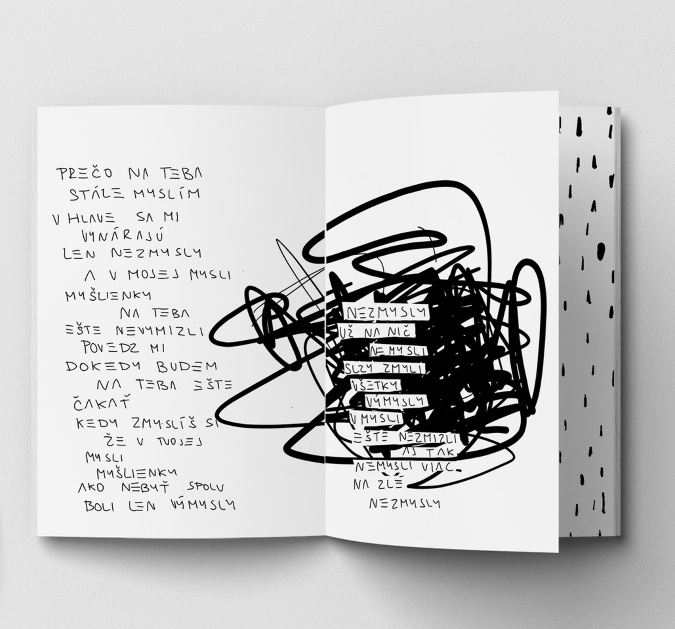 PREČO NA TEBA
STÁLE MYSLÍM
V HLAVE SA MI
VYNÁRAJÚ
LEN NEZMYSLY
A V MOJEJ MYSLI
MYŠLIENKY
NA TEBA
EŠTE NEVYMIZLI
POVEDZ MI
DOKEDY BUDEM
NA TEBA EŠTE
ČAKAŤ
KEDY ZMYSLÍŠ SI
ŽE V TVOJEJ
MYSLI
MYŠLIENKY
AKO NEBYŤ SPOLU
BOLI LEN VÝMYSLY
NEZMYSLY
UŽ NA NIČ
NEMYSLI
SLZY ZMYLI
VŠETKY
VÝMYSLY
V MYSLI
EŠTE NEZMIZLI
AJ TAK
NEMYSLI VIAC
NA ZLÉ
NEZMYSLY